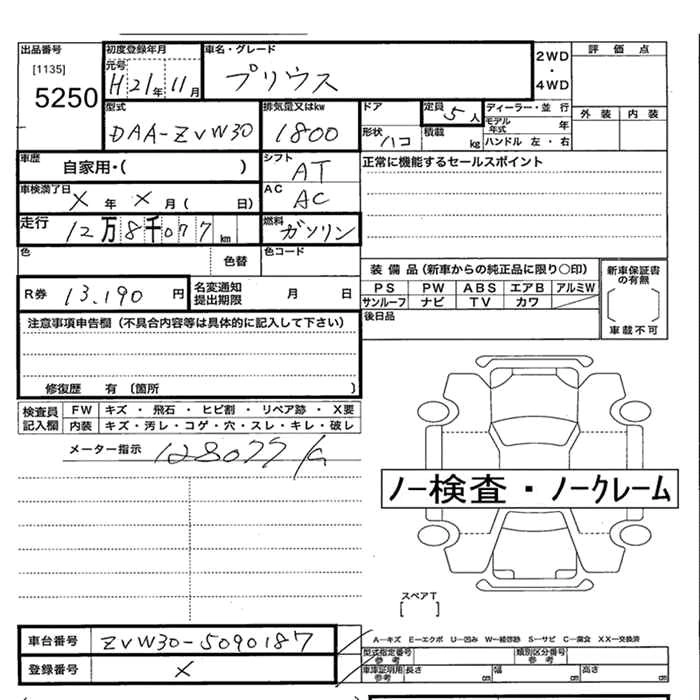 出品番号
[1135]
5250
初度登録年月
元号 H21年 11月
車名・グレード
プリウス
2WD
・
4WD
評価点
外装 内装
型式
DAA-ZVW30
排気量又はkw
1800
ドア
形状 ハコ
定員 5人
積載 kg
ディーラー・並行
モデル年式 年
ハンドル 左・右
車歴
自家用・( )
シフト
AT
正常に機能するセールスポイント
車検満了日
X 年 X 月( 日)
AC
AC
走行
12万8千077km
燃料
ガソリン
色
色替
色コード
装備品(新車からの純正品に限り〇印)
PS PW ABS エアB アルミW
サンルーフ ナビ TV カワ
新車保証書の有無
[ ]
車載不可
R券 13.190円
名変通知
提出期限 月 日
後日品
注意事項申告欄(不具合内容等は具体的に記入して下さい)
修復歴 有 〔箇所 〕
検査員記入欄
FW キズ・飛石・ヒビ割・リペア跡・X要
内装 キズ・汚レ・コゲ・穴・スレ・キレ・破レ
メーター指示 128077
ノー検査・ノークレーム
スペアT
[ ]
車台番号 ZVW30-5090187
登録番号 X
A―キズ E―エクボ U―凹み W―補修跡 S―サビ C―腐食 XX―交換済
型式指定番号 参考
類別区分番号 参考
車庫証明用 参考 長さ cm 幅 cm 高さ cm